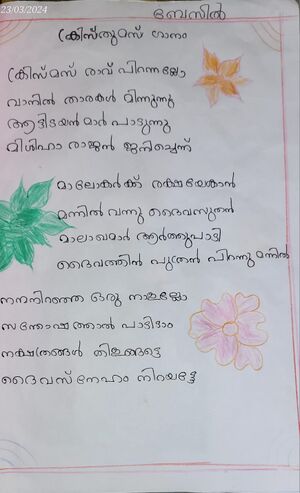 23/03/2024
ബേസിൽ
ക്രിസ്തുമസ് ഗാനം
ക്രിസ്മസ് രാവ് പിറന്നല്ലോ
വാനിൽ താരകൾ മിന്നുന്നു
ആട്ടിടയൻമാർ പാടുന്നു
മിശിഹാ രാജൻ ജനിച്ചെന്ന്
മാലോകർക്ക് രക്ഷയേകാൻ
മന്നിൽ വന്നു ദൈവസുതൻ
മാലാഖമാർ ആർത്തുപാടി
ദൈവത്തിൻ പുത്രൻ പിറന്നു മന്നിൽ
നന്മനിറഞ്ഞ ഒരു നാളല്ലോ
സന്തോഷത്താൽ പാടിടാം
നക്ഷത്രങ്ങൾ തിളങ്ങട്ടെ
ദൈവസ്നേഹം നിറയട്ടേ